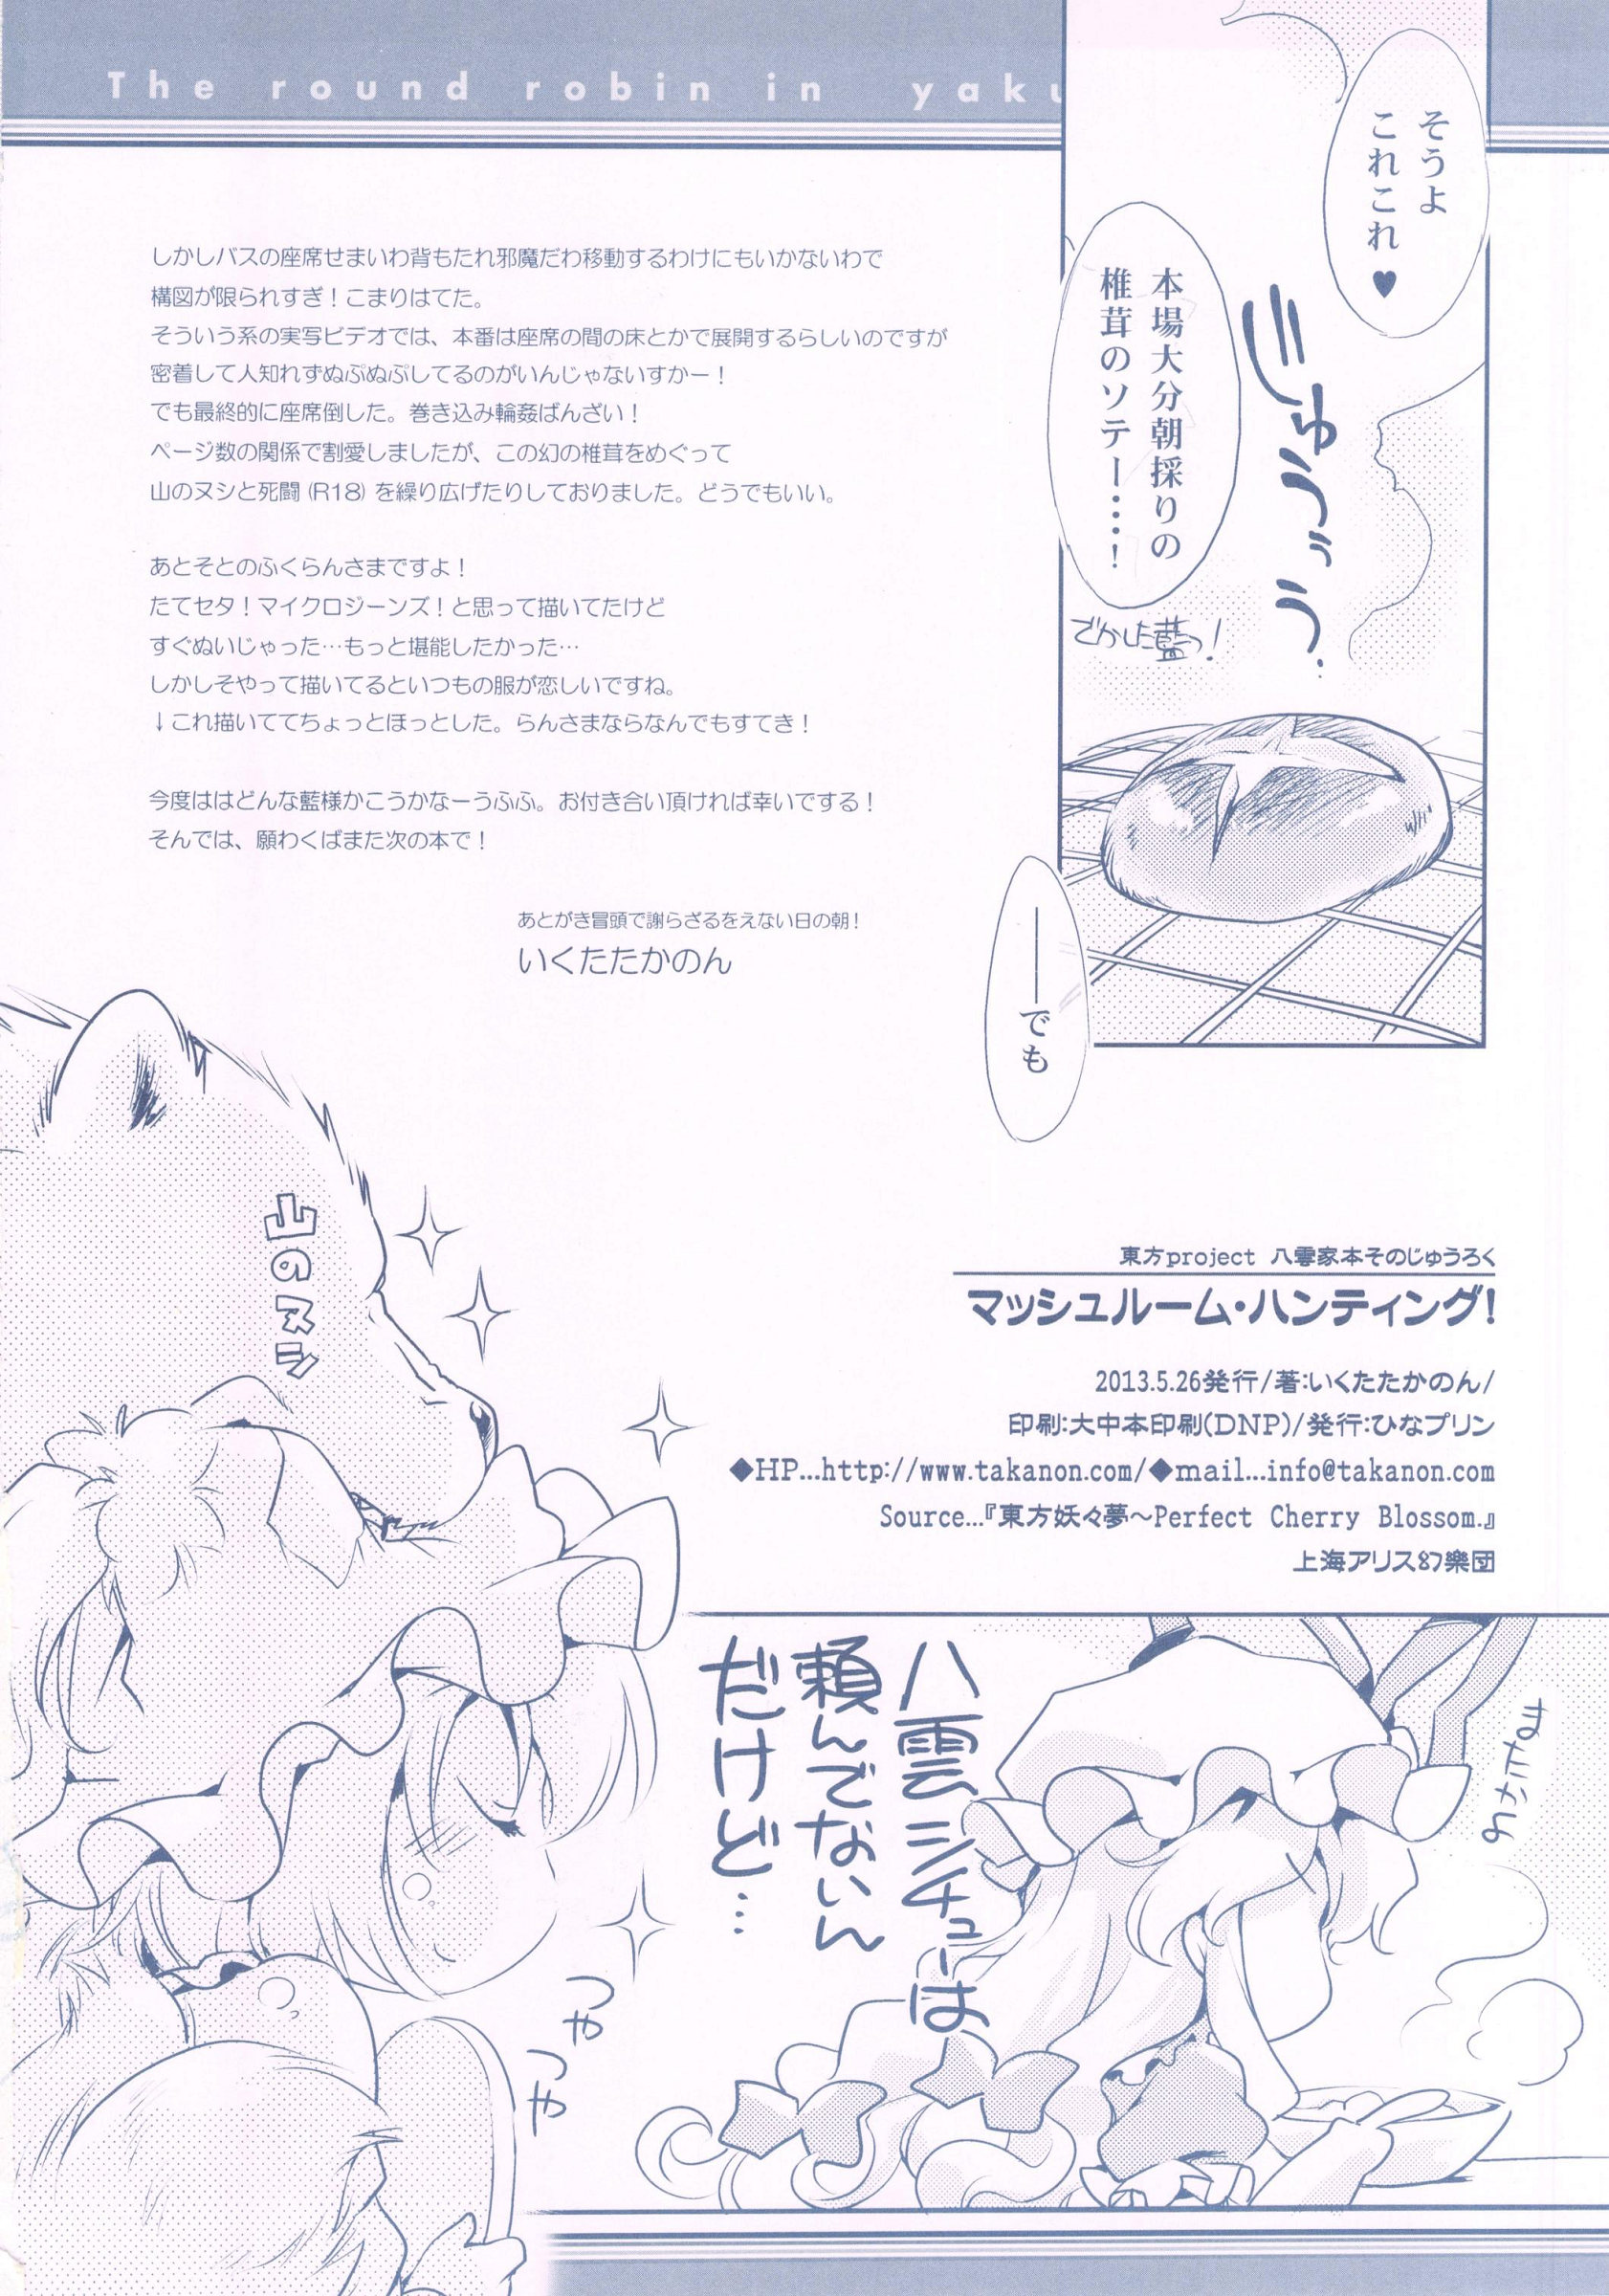 The round robin in yaku
そうよ
これこれ♥
本場大分朝採りの
椎茸のソテー・・・・!
じゅうぅぅ
でかした藍っ!
──でも
しかしバスの座席せまいわ背もたれ邪魔だわ移動するわけにもいかないわで
構図が限られすぎ!こまりはてた。
そういう系の実写ビデオでは、本番は座席の間の床とかで展開するらしいのですが
密着して人知れずぬぷぬぷしてるのがいんじゃないすかー!
でも最終的に座席倒した。巻き込み輪姦ばんざい!
ページ数の関係で割愛しましたが、この幻の椎茸をめぐって
山のヌシと死闘 (R18) を繰り広げたりしておりました。どうでもいい。
あとそとのふくらんさまですよ!
たてセタ!マイクロジーンズ!と思って描いてたけど
すぐぬいじゃった…もっと堪能したかった…
しかしそやって描いてるといつもの服が恋しいですね。
↓これ描いててちょっとほっとした。らんさまならなんでもすてき!
今度ははどんな藍様かこうかなーうふふ。お付き合い頂ければ幸いでする!
そんでは、願わくばまた次の本で!
あとがき冒頭で謝らざるをえない日の朝!
いくたたかのん
山のヌシ
東方project 八雲家本そのじゅうろく
マッシュルーム・ハンティング!
2013.5.26発行/著:いくたたかのん/
印刷:大中本印刷(DNP)/発行:ひなプリン
◆HP...http://www.takanon.com/◆mail...info@takanon.com
Source...『東方妖々夢～Perfect Cherry Blossom.』
上海アリス幻樂団
八雲シチューは
頼んでないん
だけど…
つや
つや